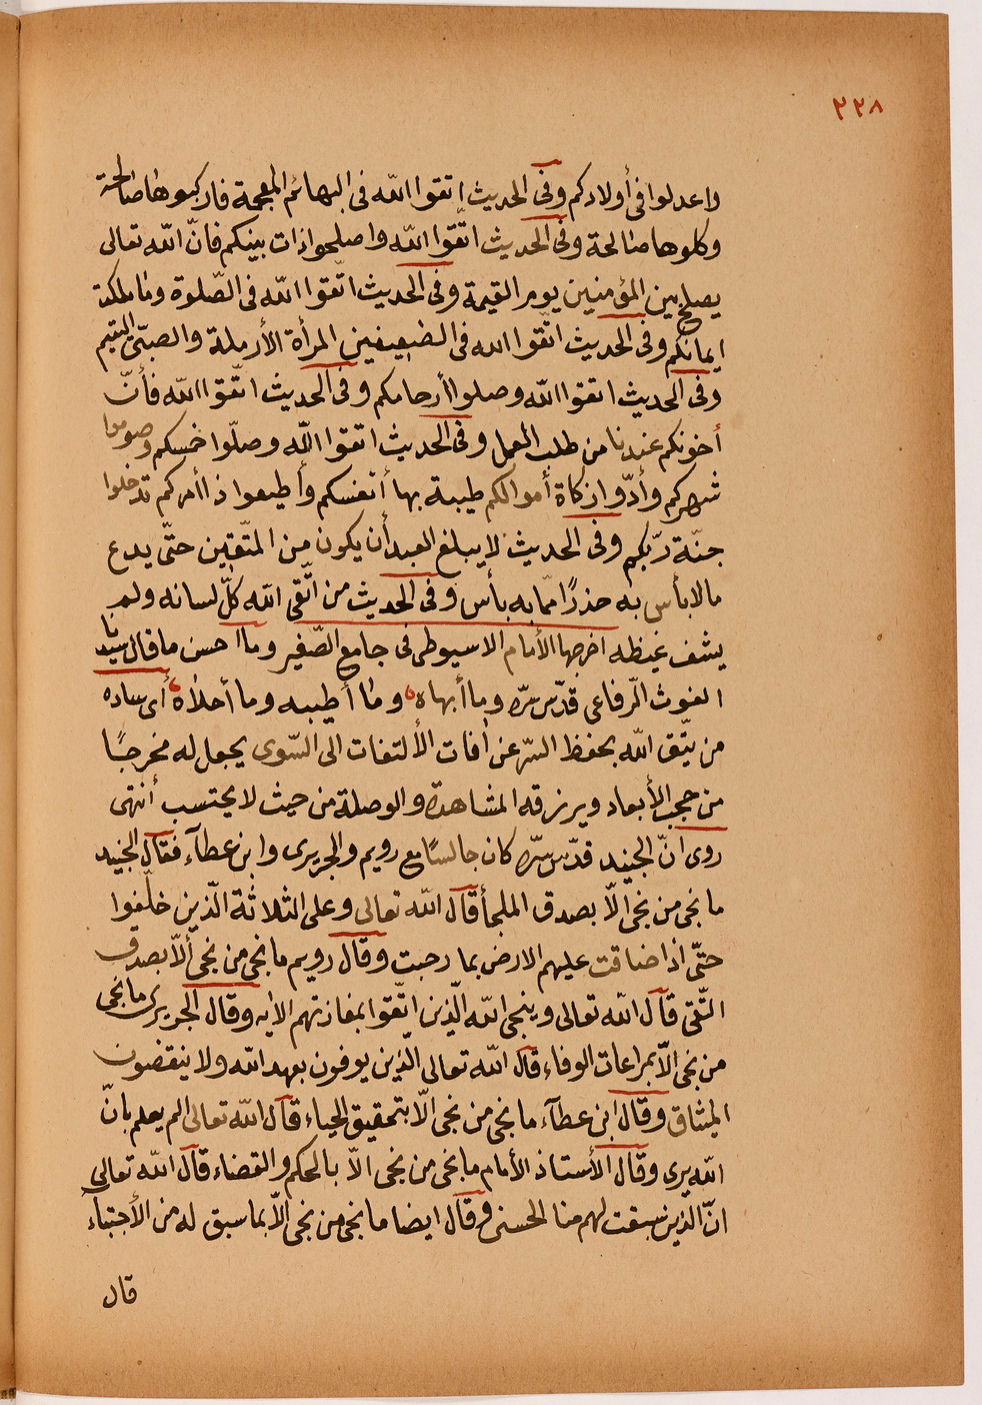 ٢٢٨
واعدلوا في أولادكم وفى الحديث اتقوا الله فى البهائم المعجمة فاركبوها صالحة
وكلوها صالحة وفى الحديث اتّقوا الله واصلحوا ذات بينكم فانّ الله تعالى
يصلح بين المؤمنين يوم القيمة وفى الحديث اتّقوا الله فى الصّلوة وما ملكت
ايمانكم وفى الحديث اتّقوا الله فى الضعيفين المرأة الأرملة والصبىّ اليتيم
وفى الحديث اتقوا الله وصلوا أرحامكم وفى الحديث اتّقوا الله فأنّ
أخونكم عندنا من طلب العمل وفى الحديث اتقوا الله وصلّوا خمسكم وصوموا
شهركم وأدّوا زكاة أموالكم طيبة بها أنفسكم وأطيعوا ذا أمركم تدخلوا
جنّة ربّكم وفى الحديث لا يبلغ العبد أن يكون من المتّقين حتّى يدع
مالا بأس به حذرًا ممّا به بأس وفى الحديث من اتّقى الله كلّ لسانه ولم
يشف غيظه اخرجها الأمام الاسيوطى فى جامع الصّغير وما احسن ما قال سيدنا
الغوث الرّفاعى قدّس سرّه وما أبهاه وما أطيبه وما أحلاه أى ساده
من يتّق الله بحفظ السّر عن أفات الألتفات الى السّوى يجعل له مخرجًا
من حجب الأبعاد ويرزقه المشاهدة والوصلة من حيث لا يحتسب أنتهى
روى انّ الجنيد قدّس سرّه كان جالسًا مع رويم والجريرى وابن عطآء فقال الجنيد
ما نجى من نجى الّا بصدق الملجأ قال الله تعالى وعلى الثلاثة الّذين خلّفوا
حتّى اذا ضاقت عليهم الارض بما رحبت وقال رويم ما نجى من نجى ألّا بصدق
التّقى قال الله تعالى وينجى الله الّذين اتّقوا بمفازتهم الأيه وقال الجريرى ما نجى
من نجى الّا بمراعات الوفاء قال الله تعالى الّذين يوفون بعهد الله ولا ينقضون
الميثاق وقال ابن عطآء ما نجى من نجى الّا بتحقيق الحياء قال الله تعالى الم يعلم بانّ
الله يرى وقال الأستاذ الأمام ما نجى من نجى الّا بالحكم والقضاء قال الله تعالى
انّ الذين سبقت لهم منا الحسنى وقال ايضا ما نجى من نجى ألّا بما سبق له من الأجتباء
قال